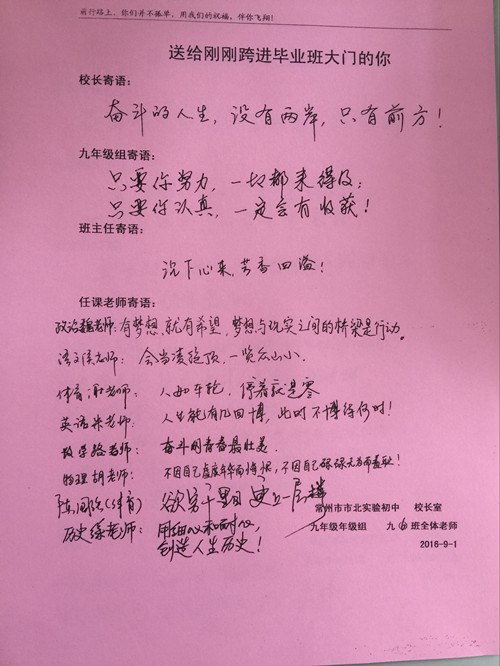 前行路上，你们并不孤单，用我们的祝福，伴你飞翔！
送给刚刚跨进毕业班大门的你
校长寄语：
奋斗的人生，没有两岸，只有前方！
九年级组寄语：
只要你努力，一切都来得及；
只要你认真，一定会有收获！
班主任寄语：
沉下心来，芳香四溢！
任课老师寄语：
政治魏老师：有梦想，就有希望，梦想与现实之间的桥梁是行动。
语文侯老师：会当凌绝顶，一览众山小。
体育 谢老师：人如车轮，停着就是零
英语 朱老师：人生能有几回搏，此时不搏待何时！
数学 骆老师：奋斗的青春最壮美
物理 胡老师：不因自己虚度年华而悔恨，不因自己碌碌无为而羞耻！
陈国强（体育）欲穷千里目 更上一层楼
历史 徐老师：用细心和耐心，
创造人生历史！
常州市市北实验初中 校长室
九年级年级组 九⑥班全体老师
2016-9-1